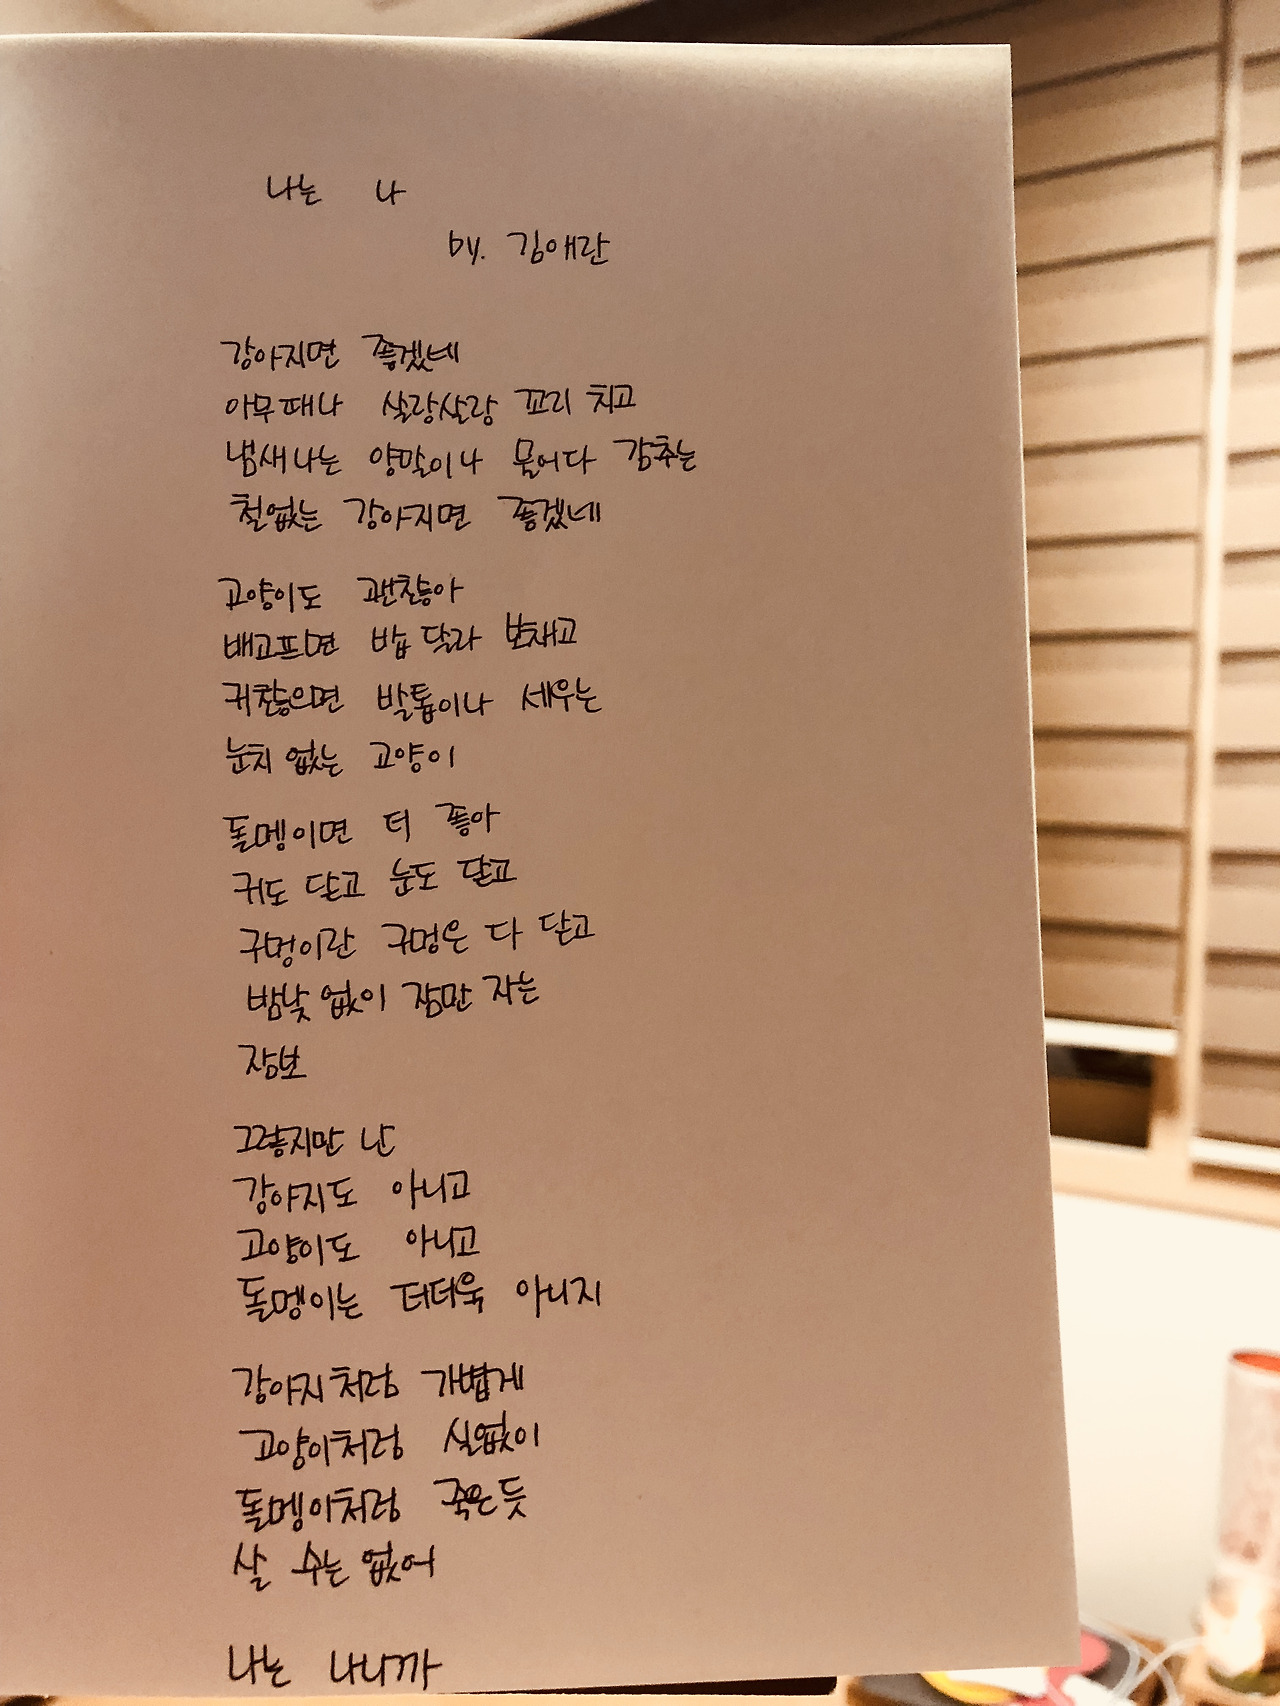 나는 나
by. 김애란
강아지면 좋겠네
아무때나 살랑살랑 꼬리 치고
냄새나는 양말이나 물어다 감추는
철없는 강아지면 좋겠네
고양이도 괜찮아
배고프면 밥 달라 보채고
귀찮으면 발톱이나 세우는
눈치 없는 고양이
돌멩이면 더 좋아
귀도 닫고 눈도 닫고
구멍이란 구멍은 다 닫고
밤낮 없이 잠만 자는
잠보
그렇지만 난
강아지도 아니고
고양이도 아니고
돌멩이는 더더욱 아니지
강아지처럼 가볍게
고양이처럼 실없이
돌멩이처럼 죽은듯
살 수는 없어
나는 나니까